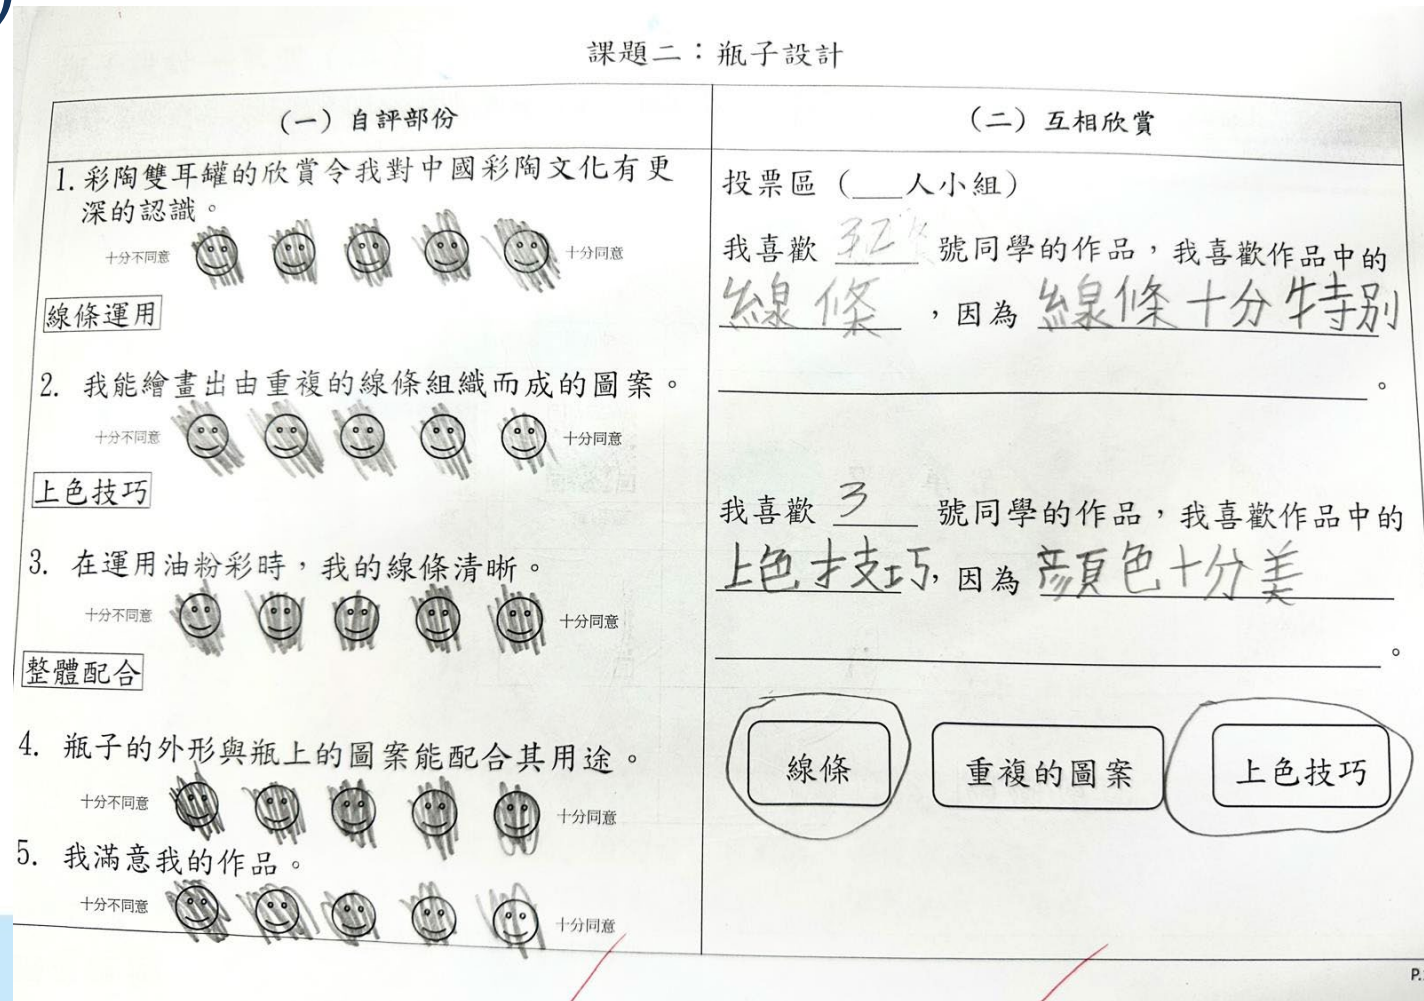 課題二：瓶子設計
（一）自評部份
1. 彩陶雙耳罐的欣賞令我對中國彩陶文化有更
深的認識。
十分不同意 十分同意
線條運用
2. 我能繪畫出由重複的線條組織而成的圖案。
十分不同意 十分同意
上色技巧
3. 在運用油粉彩時，我的線條清晰。
十分不同意 十分同意
整體配合
4. 瓶子的外形與瓶上的圖案能配合其用途。
十分不同意 十分同意
5. 我滿意我的作品。
十分不同意 十分同意
（二）互相欣賞
投票區（___人小組）
我喜歡 32 號同學的作品，我喜歡作品中的
線條，因為 線條十分特別
。
我喜歡 3 號同學的作品，我喜歡作品中的
上色技巧，因為 顏色十分美
。
線條 重複的圖案 上色技巧